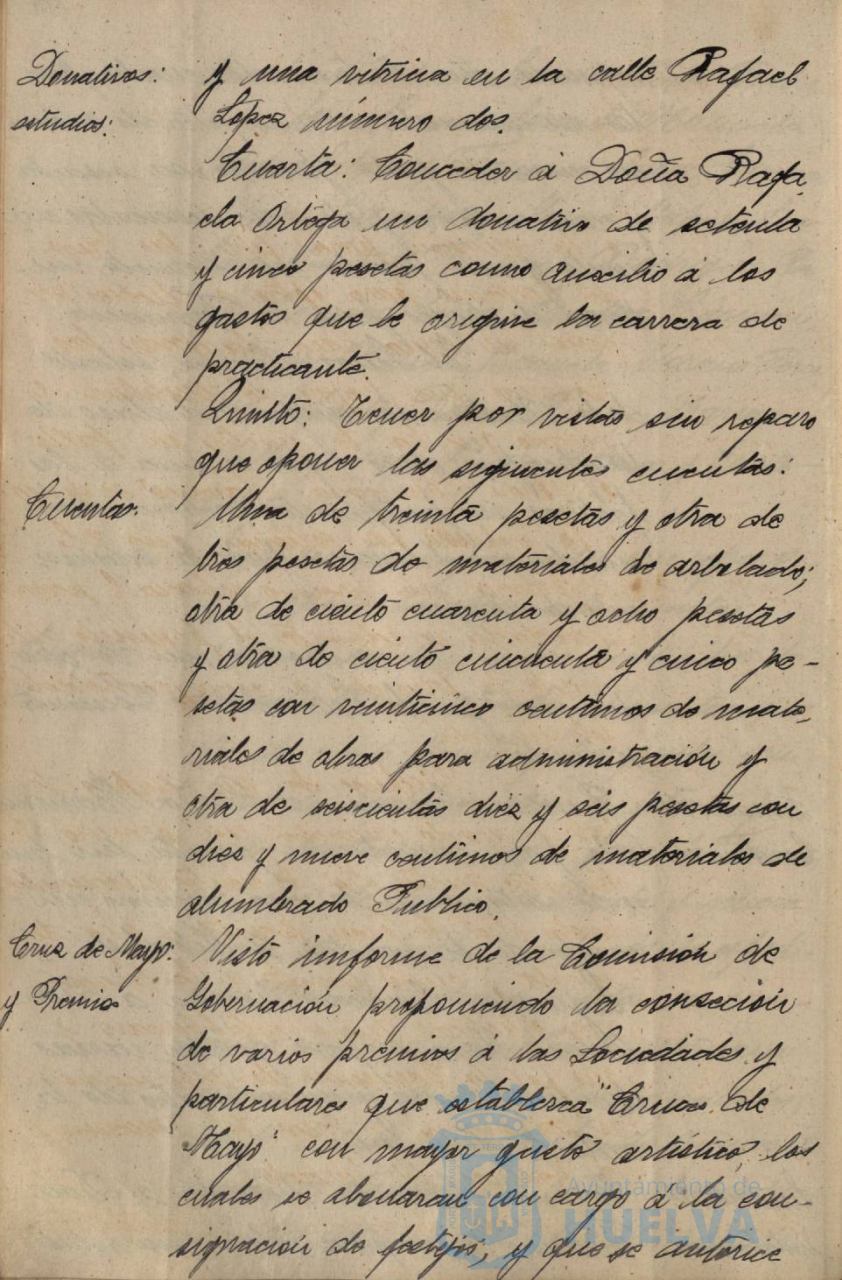 Donativos:
estudios:
y una vitrina en la calle Rafael
López número dos.
Cuarta: Conceder á Doña Rafa,
ela Ortega un donativo de setenta
y cinco pesetas como auxilio á los
gastos que le origine la carrera de
practicante.
Quinto: Tener por vistas sin reparo
que oponer las siguientes cuentas:
Cuentas.
Una de treinta pesetas y otra de
tres pesetas de materiales de arbolado;
otra de ciento cuarenta y ocho pesetas
y otra de ciento cincuenta y cinco pe-
setas con veinticinco centimos de mate,
riales de obras para administración y
otra de seiscientas diez y seis pesetas con
diez y nueve centimos de materiales de
alumbrado Publico.
Cruz de Mayo:
y Premios
Visto informe de la Comisión de
Gobernación proponiendo la conseción
de varios premios á las Sociedades y
particulares que establesca "Cruces de
Mayo" con mayor gusto artístico, los
cuales se abonaran con cargo á la con-
signación de festejos, y que se autorice
Ayuntamiento de
HUELVA